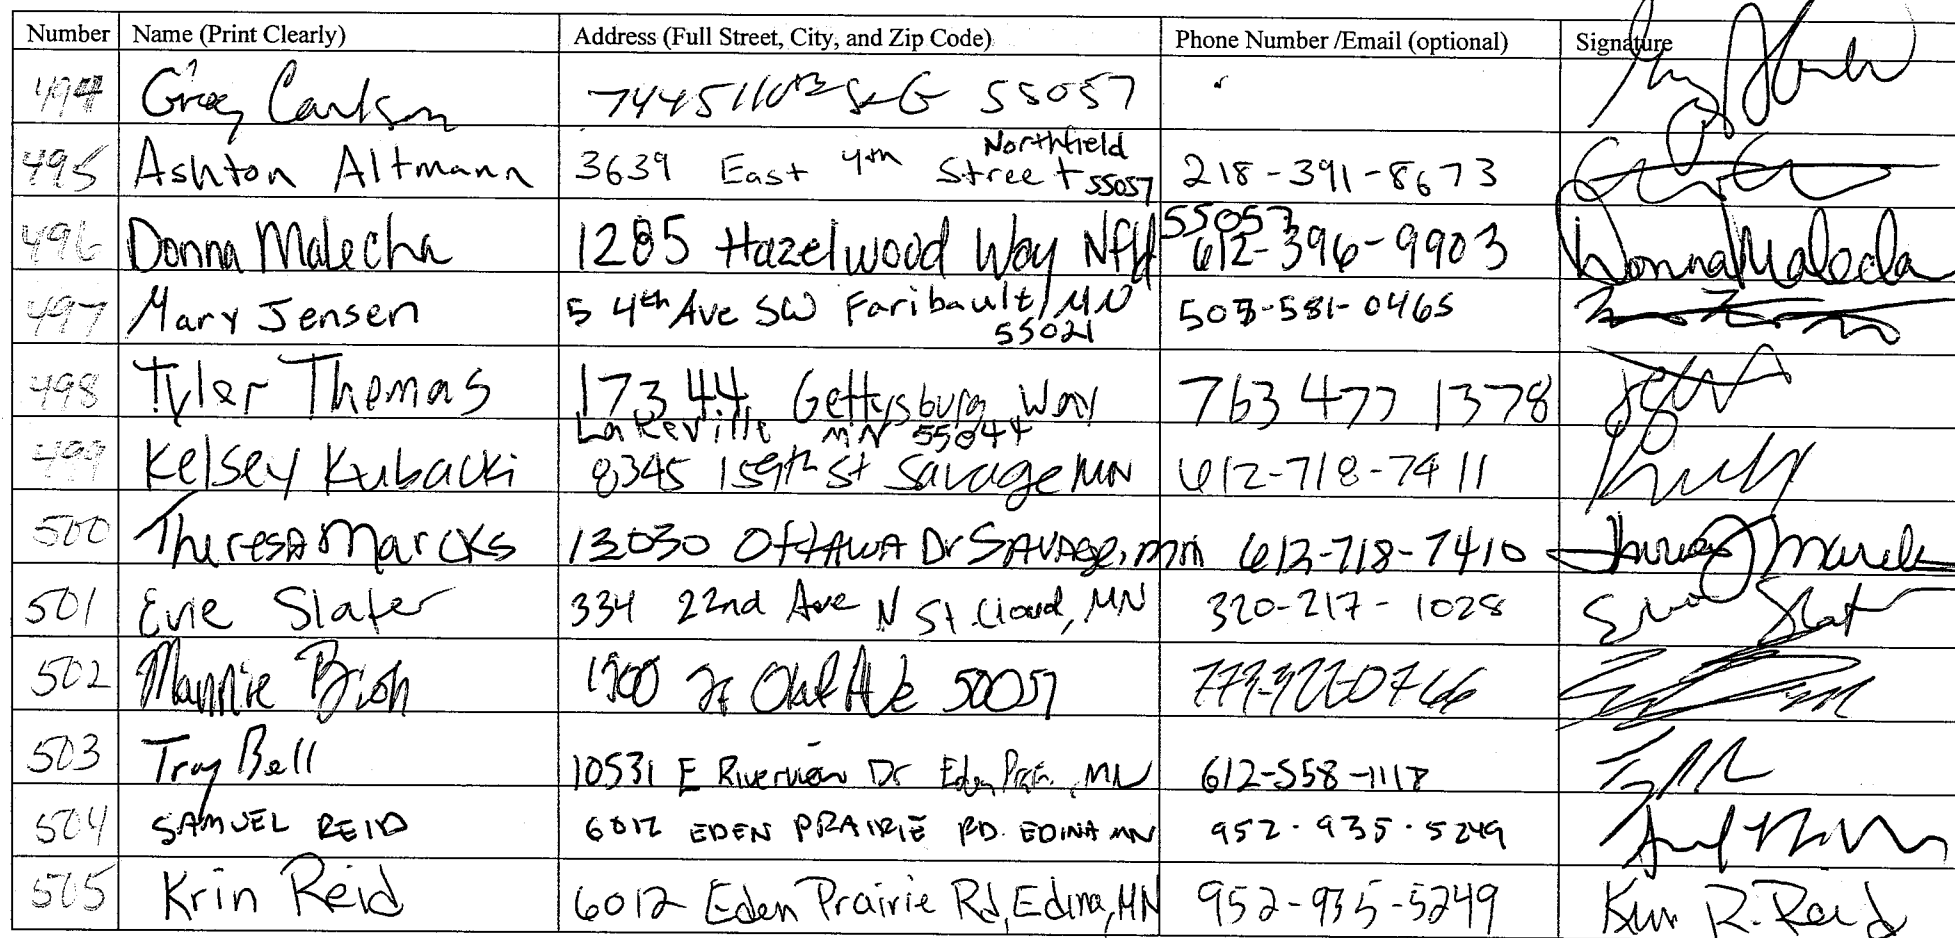 Number Name (Print Clearly) Address (Full Street, City, and Zip Code) Phone Number /Email (optional) Signature
494 Greg Carlson 7445 110th 55057
Northfield
495 Ashton Altmann 3639 East 4th Street 55057 218-391-8673
55057
496 Donna Malecha 1285 Hazelwood Way Nfld 612-396-9903 Donna Malecha
497 Mary Jensen 5 4th Ave SW Faribault, MN 507-581-0465
55021
498 Tyler Thomas 17344 Gettysburg Way 763 477 1378
Lakeville MN 55044
499 Kelsey Kubacki 8345 159th St Savage MN 612-718-7411
500 Theresa Marcks 13030 Ottawa Dr Savage, mn 612-718-7410 Marcks
501 Evie Slater 334 22nd Ave N St. Cloud, MN 320-217-1028 Slat
502 Mannie
503 Troy Bell 10531 E Riverview Dr Eden , MN 612-558-1117
504 SAMUEL REID 6012 EDEN PRAIRIE RD. EDINA MN 952.935.5249
505 Krin Reid 6012 Eden Prairie Rd, Edina, MN 952-935-5249 R. Reid